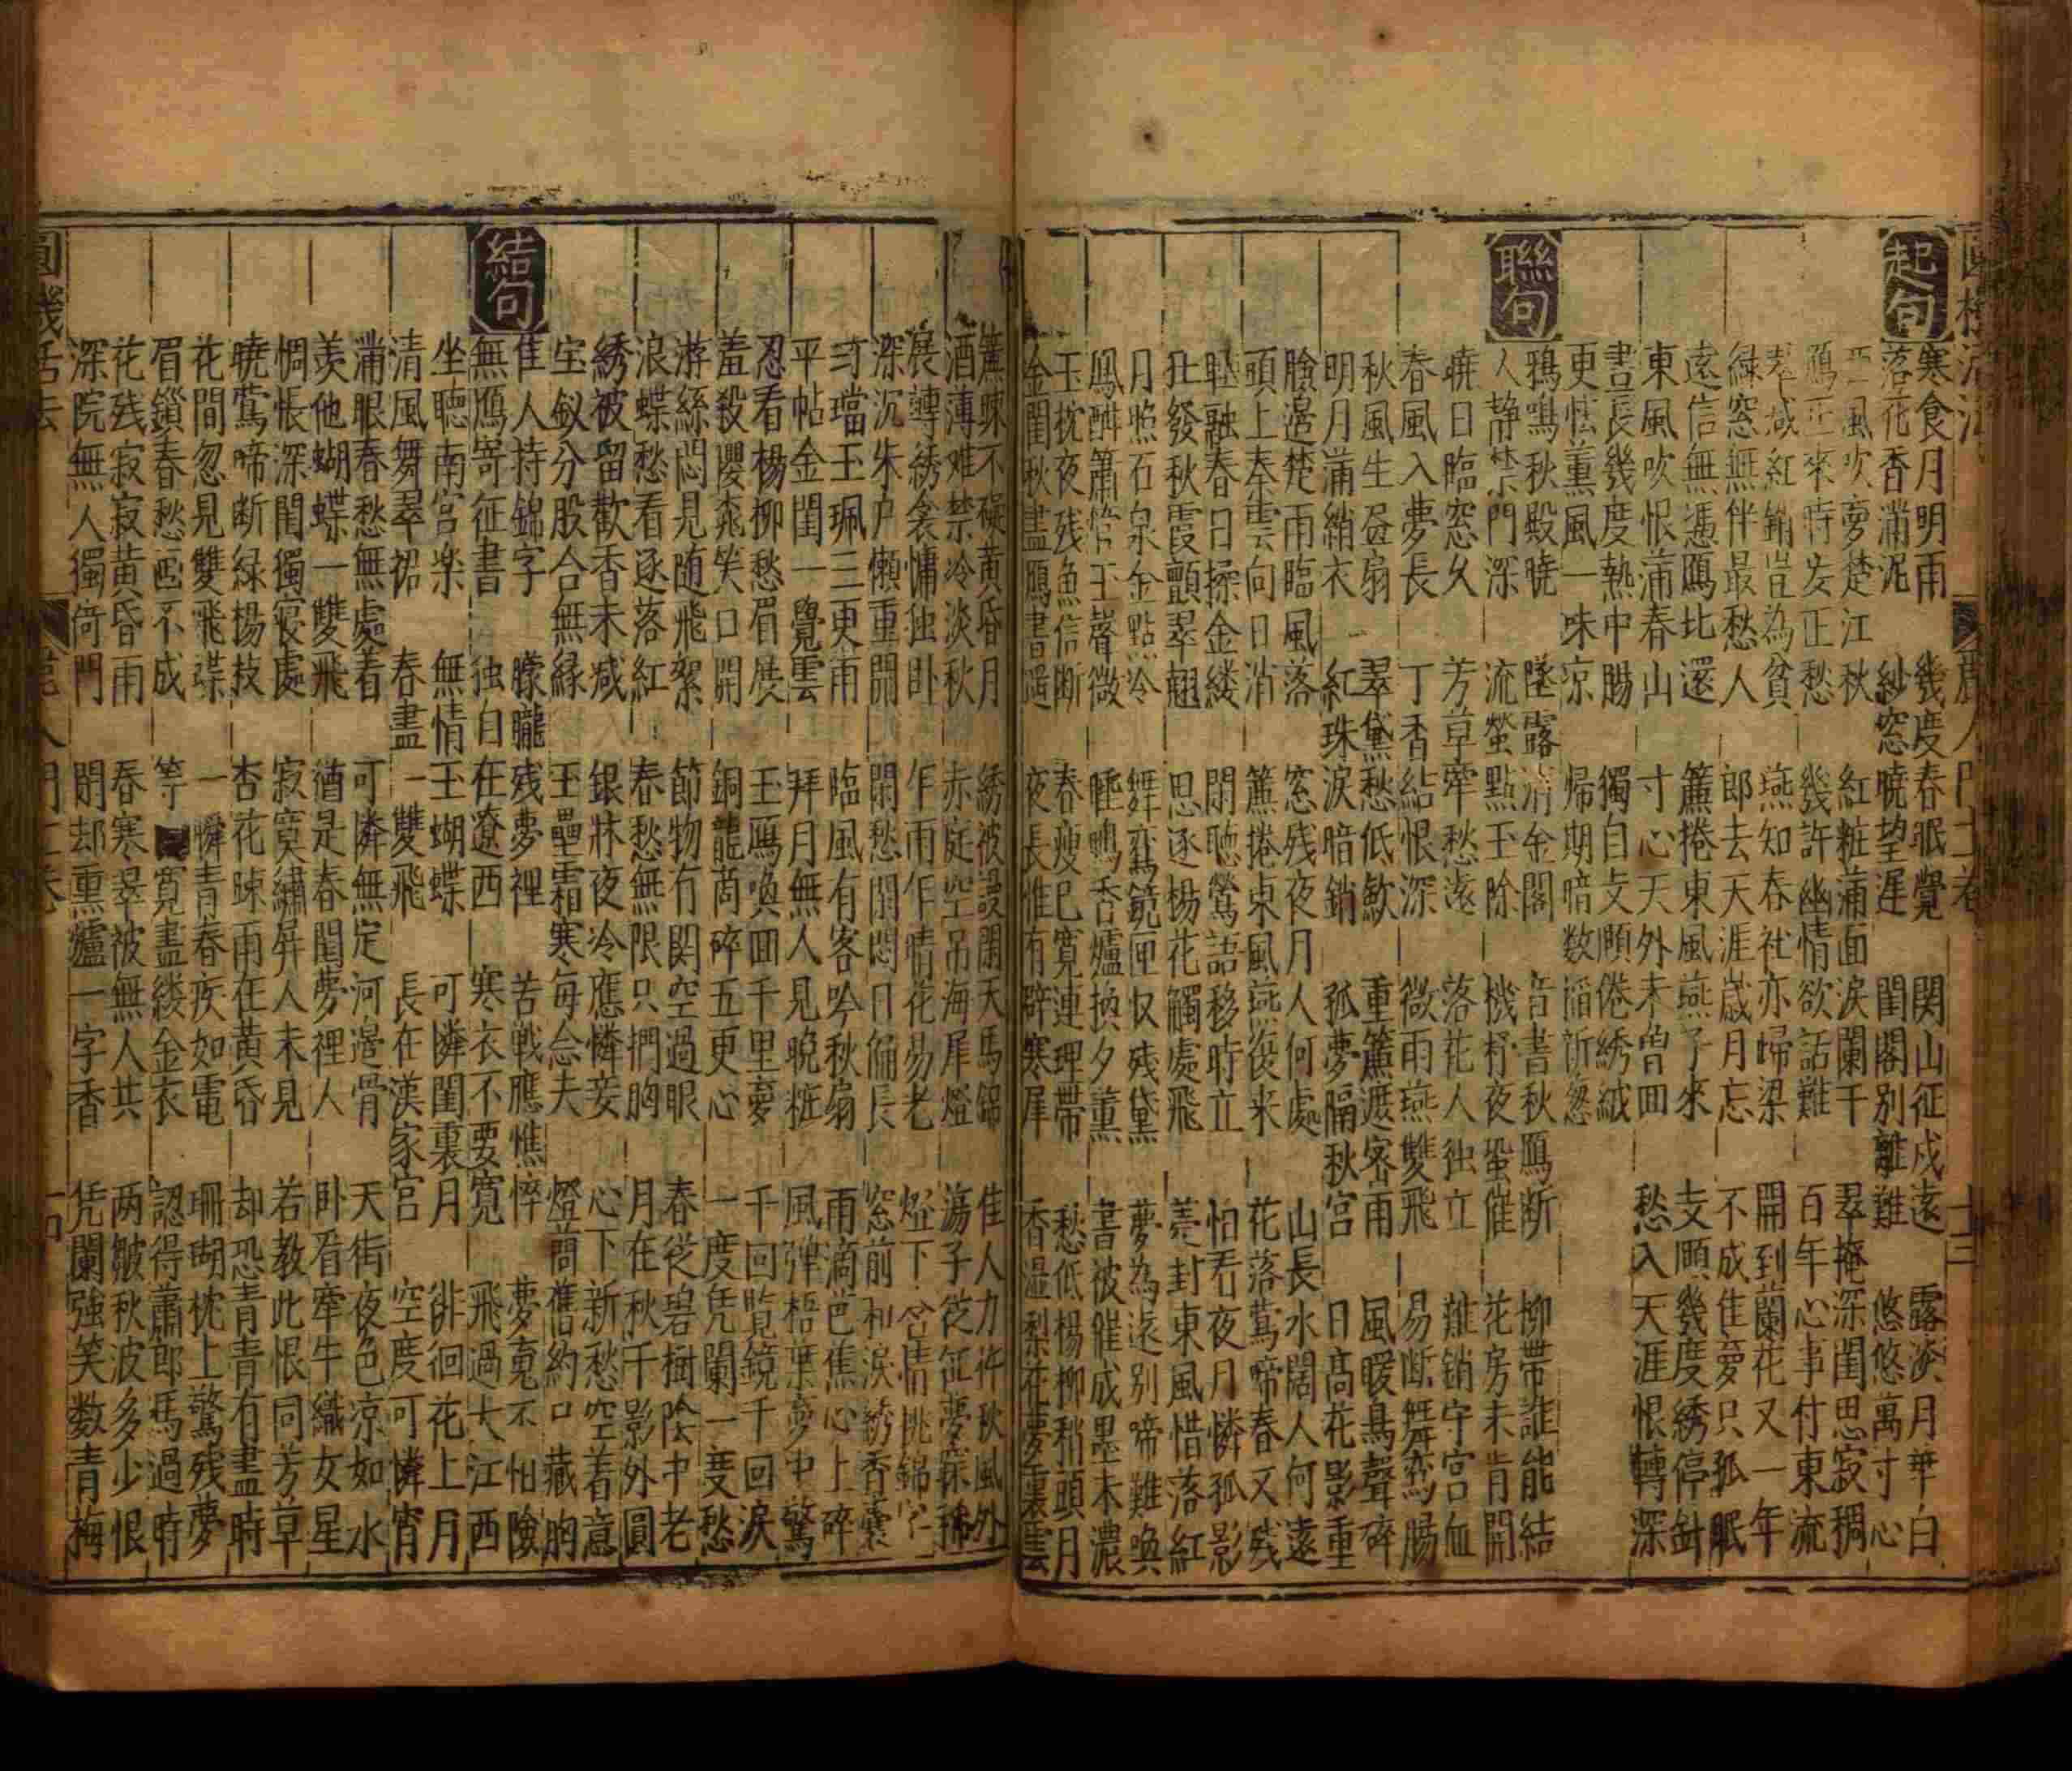 起句
寒食月明雨　幾度春眠覺　関山征戍遠　露湙月華白
落花香滿泥　紗窓曉望遅　閨閣别離難　悠悠萬寸心
西風吹夢楚江秋　紅粧蒲面淚闌干　翠掩深閨思寂稠
鴈正來時妾正愁　幾許幽情欲話難　百年心事付東流
翠 紅銷豈為貧　燕知春社亦歸梁　開到蘭花又一年
緑窓無伴最愁人　郎去天涯歲月忘　不成佳夢只孤眠
遠信無憑鴈比還　簾捲東風燕子來　支頤幾度綉停針
東風吹恨蒲春山　寸心天外未曽囬　愁入天涯恨轉深
晝長幾度熱中腸　獨自支頤倦綉絨
更怯薫風一味凉　帰期暗数
聯句
鴉鳴秋殿暁　墜露清金閣　音書秋鴈断　柳帶誰能結
人静禁門深　流螢點玉除　機杼夜蛩催　花房未肯開
暁日臨窓久　芳草牽愁遠　落花人独立　難銷守宮血
春風入夢長　丁香結恨深　微雨燕雙飛　易断舞鸞腸
秋風生昼扇　翠黛愁低歛　重簾遮密雨　風暖鳥聲碎
明月蒲綃衣　紅珠淚暗銷　孤夢隔秋宮　日高花影重
臉邉楚雨臨風落　窓残夜月人何處　山長水闊人何遠
頭上秦雲向日消　簾捲東風燕 来　花落鶯啼春又残
融春日操金縷　閉聴鶯語移時立　怕看夜月憐孤影
發秋霞顫翠翹　思逐楊花觸處飛　封東風惜落紅
月照石泉金點冷　舞鸞鏡匣収残黛　夢為遠别啼難喚
鳳酣簫管玉聲微　睡鴨香爐換夕薫　書被催成墨未濃
玉枕夜残魚信断　春瘦已寛連理帶　愁低楊柳稍頭月
金閨秋盡鴈書遥　夜長惟有辟寒犀　香温梨花夢裏雲
簾疎不礙黄昏月　綉被謾閑天馬錦　佳人力 秋風外
酒薄难禁冷淡秋　赤庭空吊海犀燈　蕩子從征夢寐稀
展轉綉衾慵独卧　乍雨乍晴花易老　燈下含情挑錦字
深沉朱户懶重開　閑愁閑悶日偏長　窓前和淚綉香囊
璫玉珮三更雨　臨風有客吟秋扇　雨滴芭蕉心上碎
平帖金閨一覺雲　拜月無人見晩粧　風弾梧葉夢中驚
忍看楊柳愁眉展　玉鴈喚囬千里夢　千回覧鏡千回淚
羞殺櫻 笑口開　銅龍 碎五更心　一度凭闌一度愁
游絲悶見随飛絮　節物有関空過眼　春從碧樹陰中老
浪蝶愁看逐落紅　春愁無限只捫胸　月在秋千影外圓
綉被留歡香未减　銀牀夜冷應憐妾　心下新愁空着意
宝釵分股合無縁　玉壘霜寒每念夫　燈前舊約口藏胸
結句
佳人持錦字　朦朧残夢裡　苦戰應憔悴　夢䰟不怕險
無鴈寄征書　独自在遼西　寒衣不要寛　飛過大江西
坐聴南宮楽　無情玉蝴蝶　可憐閨裏月　徘徊花上月
清風舞翠裙　春盡一雙飛　長在漢家宮　空度可憐宵
滿眼春愁無處着　可憐無定河邉骨　天街夜色凉如水
羡他蝴蝶一雙飛　猶是春閨夢裡人　卧看牽牛織女星
惆悵深閨獨寝處　寂寞繡屏人未見　若教此恨同芳草
暁鶯啼断緑楊技　杏花疎雨在黄昏　却恐青青有盡時
花間忽見雙飛蝶　一瞬青春疾如電　珊瑚枕上驚残夢
眉鎖春愁画不成　等 寛盡縷金衣　認得蕭郎馬過時
花残寂寂黄昏雨　春寒翠被無人共　两皺秋波多少恨
深院無人獨倚門　閉却熏爐一字香　凭闌強笑数青梅